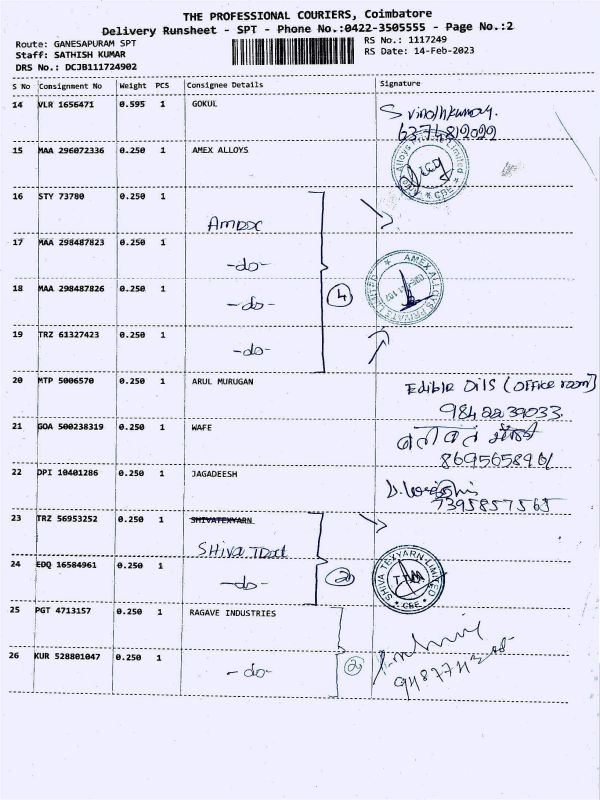 THE PROFESSIONAL COURIERS, Coimbatore
Delivery Runsheet - SPT - Phone No.:0422-3505555 - Page No.:2
Route: GANESAPURAM SPT
Staff: SATHISH KUMAR
DRS No.: DCJB111724902
RS No.: 1117249
RS Date: 14-Feb-2023
S No Consignment No Weight PCS Consignee Details Signature
14 VLR 1656471 0.595 1 GOKUL
15 MAA 296072336 0.250 1 AMEX ALLOYS
16 STY 73780 0.250 1
17 MAA 298487823 0.250 1 -do-
18 MAA 298487826 0.250 1 -do-
4
AMEX ALLOYS PRIVATE LIMITED
19 TRZ 61327423 0.250 1 -do-
20 MTP 5006570 0.250 1 ARUL MURUGAN Edible Oils (office room)
21 GOA 500238319 0.250 1 WAFE
8695658961
22 DPI 10401286 0.250 1 JAGADEESH
7395857565
23 TRZ 56953252 0.250 1 SHIVATEXYARN
24 EDQ 16584961 0.250 1 -do- 2
SHIVA TEXYARN LIMITED CBE
25 PGT 4713157 0.250 1 RAGAVE INDUSTRIES
26 KUR 528801047 0.250 1 -do- 2